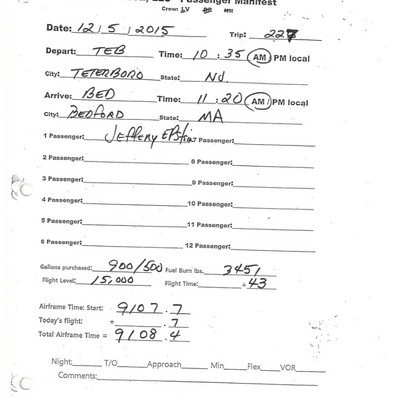 LLC - Passenger Manifest
Crew: LV
Date: 12/5/2015 Trip: 227
Depart: TEB Time: 10:35 AM PM local
City: TETERBORO State: NJ.
Arrive: BED Time: 11:20 AM PM local
City: BEDFORD State: MA
1 Passenger: Jeffery Epstin 7 Passenger:
2 Passenger: 8 Passenger:
3 Passenger: 9 Passenger:
4 Passenger: 10 Passenger:
5 Passenger: 11 Passenger:
6 Passenger: 12 Passenger:
Gallons purchased: 900/500 Fuel Burn lbs. 3451
Flight Level: 15,000 Flight Time: 43
Airframe Time: Start: 9107.7
Today's flight: + .7
Total Airframe Time = 9108.4
Night: T/O Approach Min Flex VOR
Comments: